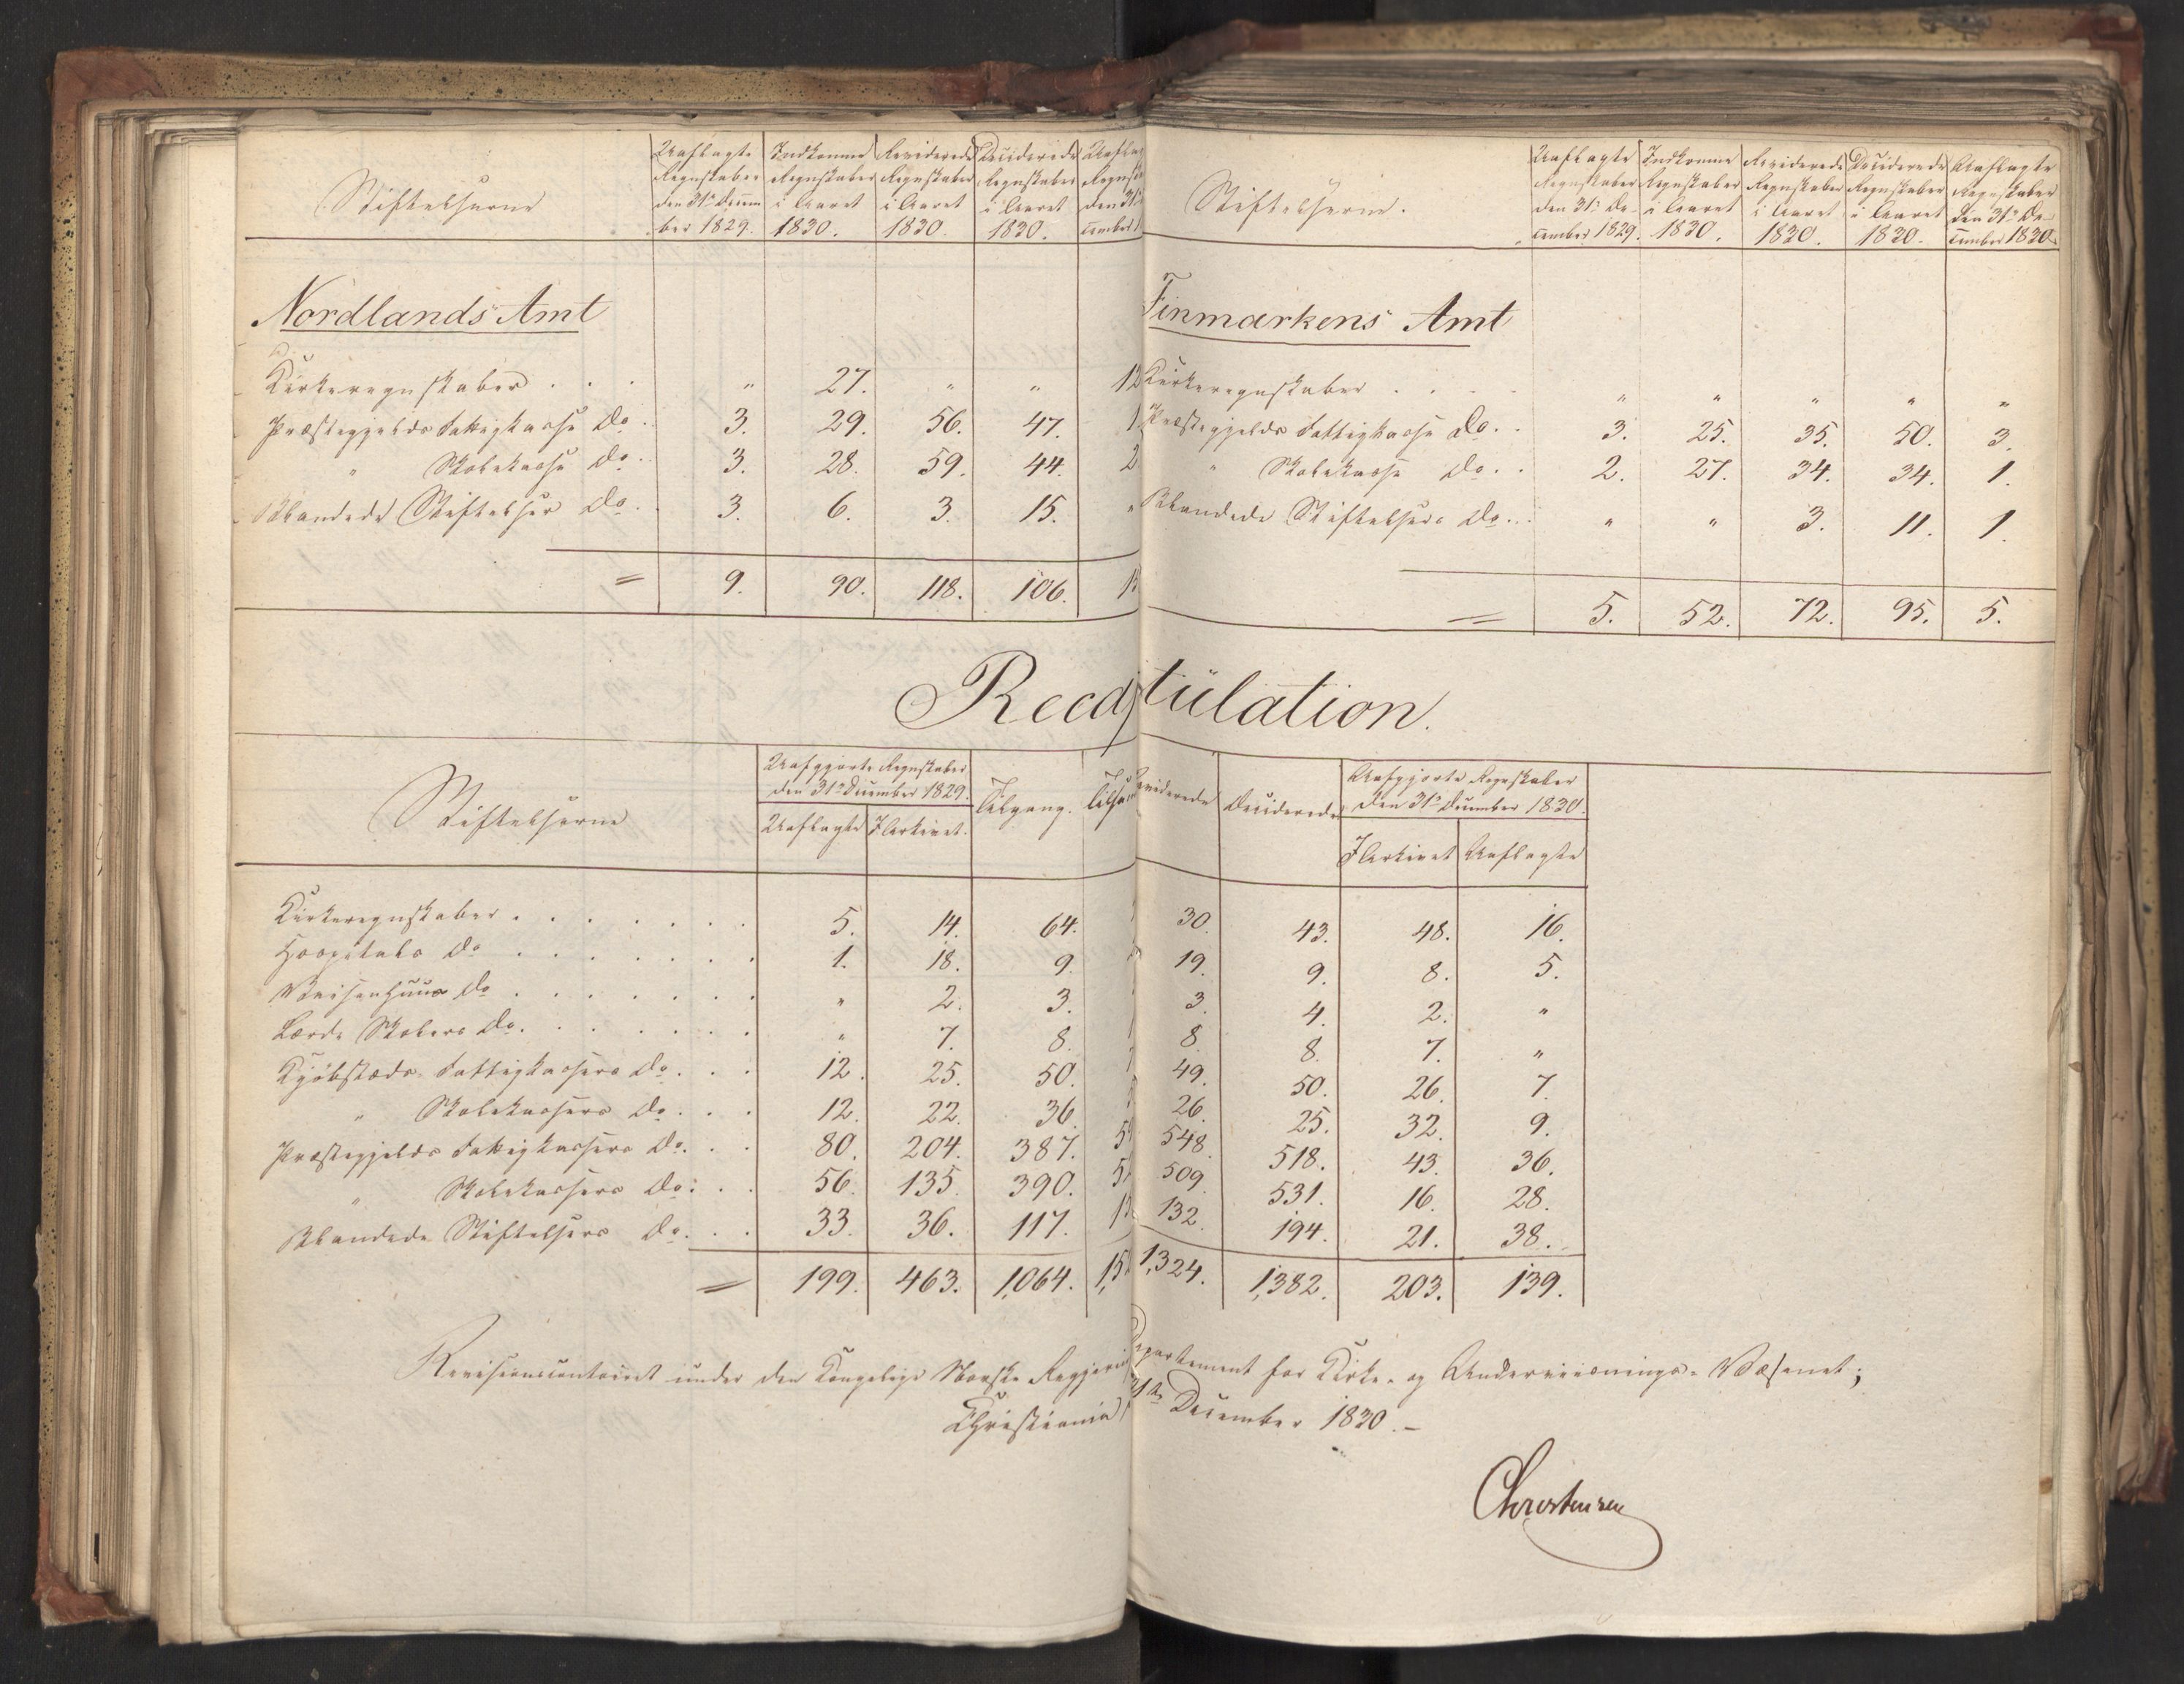 Stiftelserne
Uaflagte Regnskaber den 31te Decem- ber 1829.
Indkomne Regnskaber i Aaret 1830.
Reviderede Regnskaber i Aaret 1830.
Deciderede Regnskaber i Aaret 1830.
Nordlands Amt
Kirkeregnskaber . . . " 27. " "
Præstegjelds Fattigkasse do . . 3. 29. 56. 47.
" Skolekasse do . . 3. 28. 59. 44.
Blandede Stiftelser do . 3. 6. 3. 15.
= 9. 90. 118. 106.
Stiftelserne.
Uaflagte Regnskaber den 31te De- cember 1829.
Indkomne Regnskaber i Aaret 1830.
Reviderede Regnskaber i Aaret 1830.
Deciderede Regnskaber i Aaret 1830.
Uaflagte Regnskaber den 31te De- cember 1830.
Finmarkens Amt
Kirkeregnskaber . . . . " " " " "
Præstegjelds Fattigkasse do. . 3. 25. 35. 50. 3.
" Skolekasse do. . 2. 27. 34. 34. 1.
Blandede Stiftelsers do. . . " " 3. 11. 1.
= 5. 52. 72. 95. 5.
Recapitulation.
Stiftelserne
Uafgjorte Regnskaber den 31te December 1829.
Uaflagte I Arkivet.
Tilgang.
Reviderede
Deciderede
Uafgjorte Regnskaber den 31te December 1830.
I Arkivet Uaflagte
Kirkeregnskaber . . . . . . . 5. 14. 64. 30. 43. 48. 16.
Hospitals do . . . . . . . 1. 18. 9. 19. 9. 8. 5.
Waisenhuus do . . . . . . . " 2. 3. 3. 4. 2. "
Lærde Skolers do. . . . . . . " 7. 8. 8. 8. 7. "
Kjøbstæds Fattigkassers do. . . 12. 25. 50. 49. 50. 26. 7.
" Skolekassers do. . . 12. 22. 36. 26. 25. 32. 9.
Præstegjelds Fattigkassers do. . . 80. 204. 387. 548. 518. 43. 36.
" Skolekassers do. . . 56. 135. 390. 509. 531. 16. 28.
Blandede Stiftelsers do. . . 33. 36. 117. 132. 194. 21. 38.
= 199. 463. 1,064. 1,324. 1,382. 203. 139.
Revisionscontoiret under den Kongelige Norske Regjerings Departement for Kirke- og Underviisnings-Væsenet;
Christiania December 1830.-
Christensen